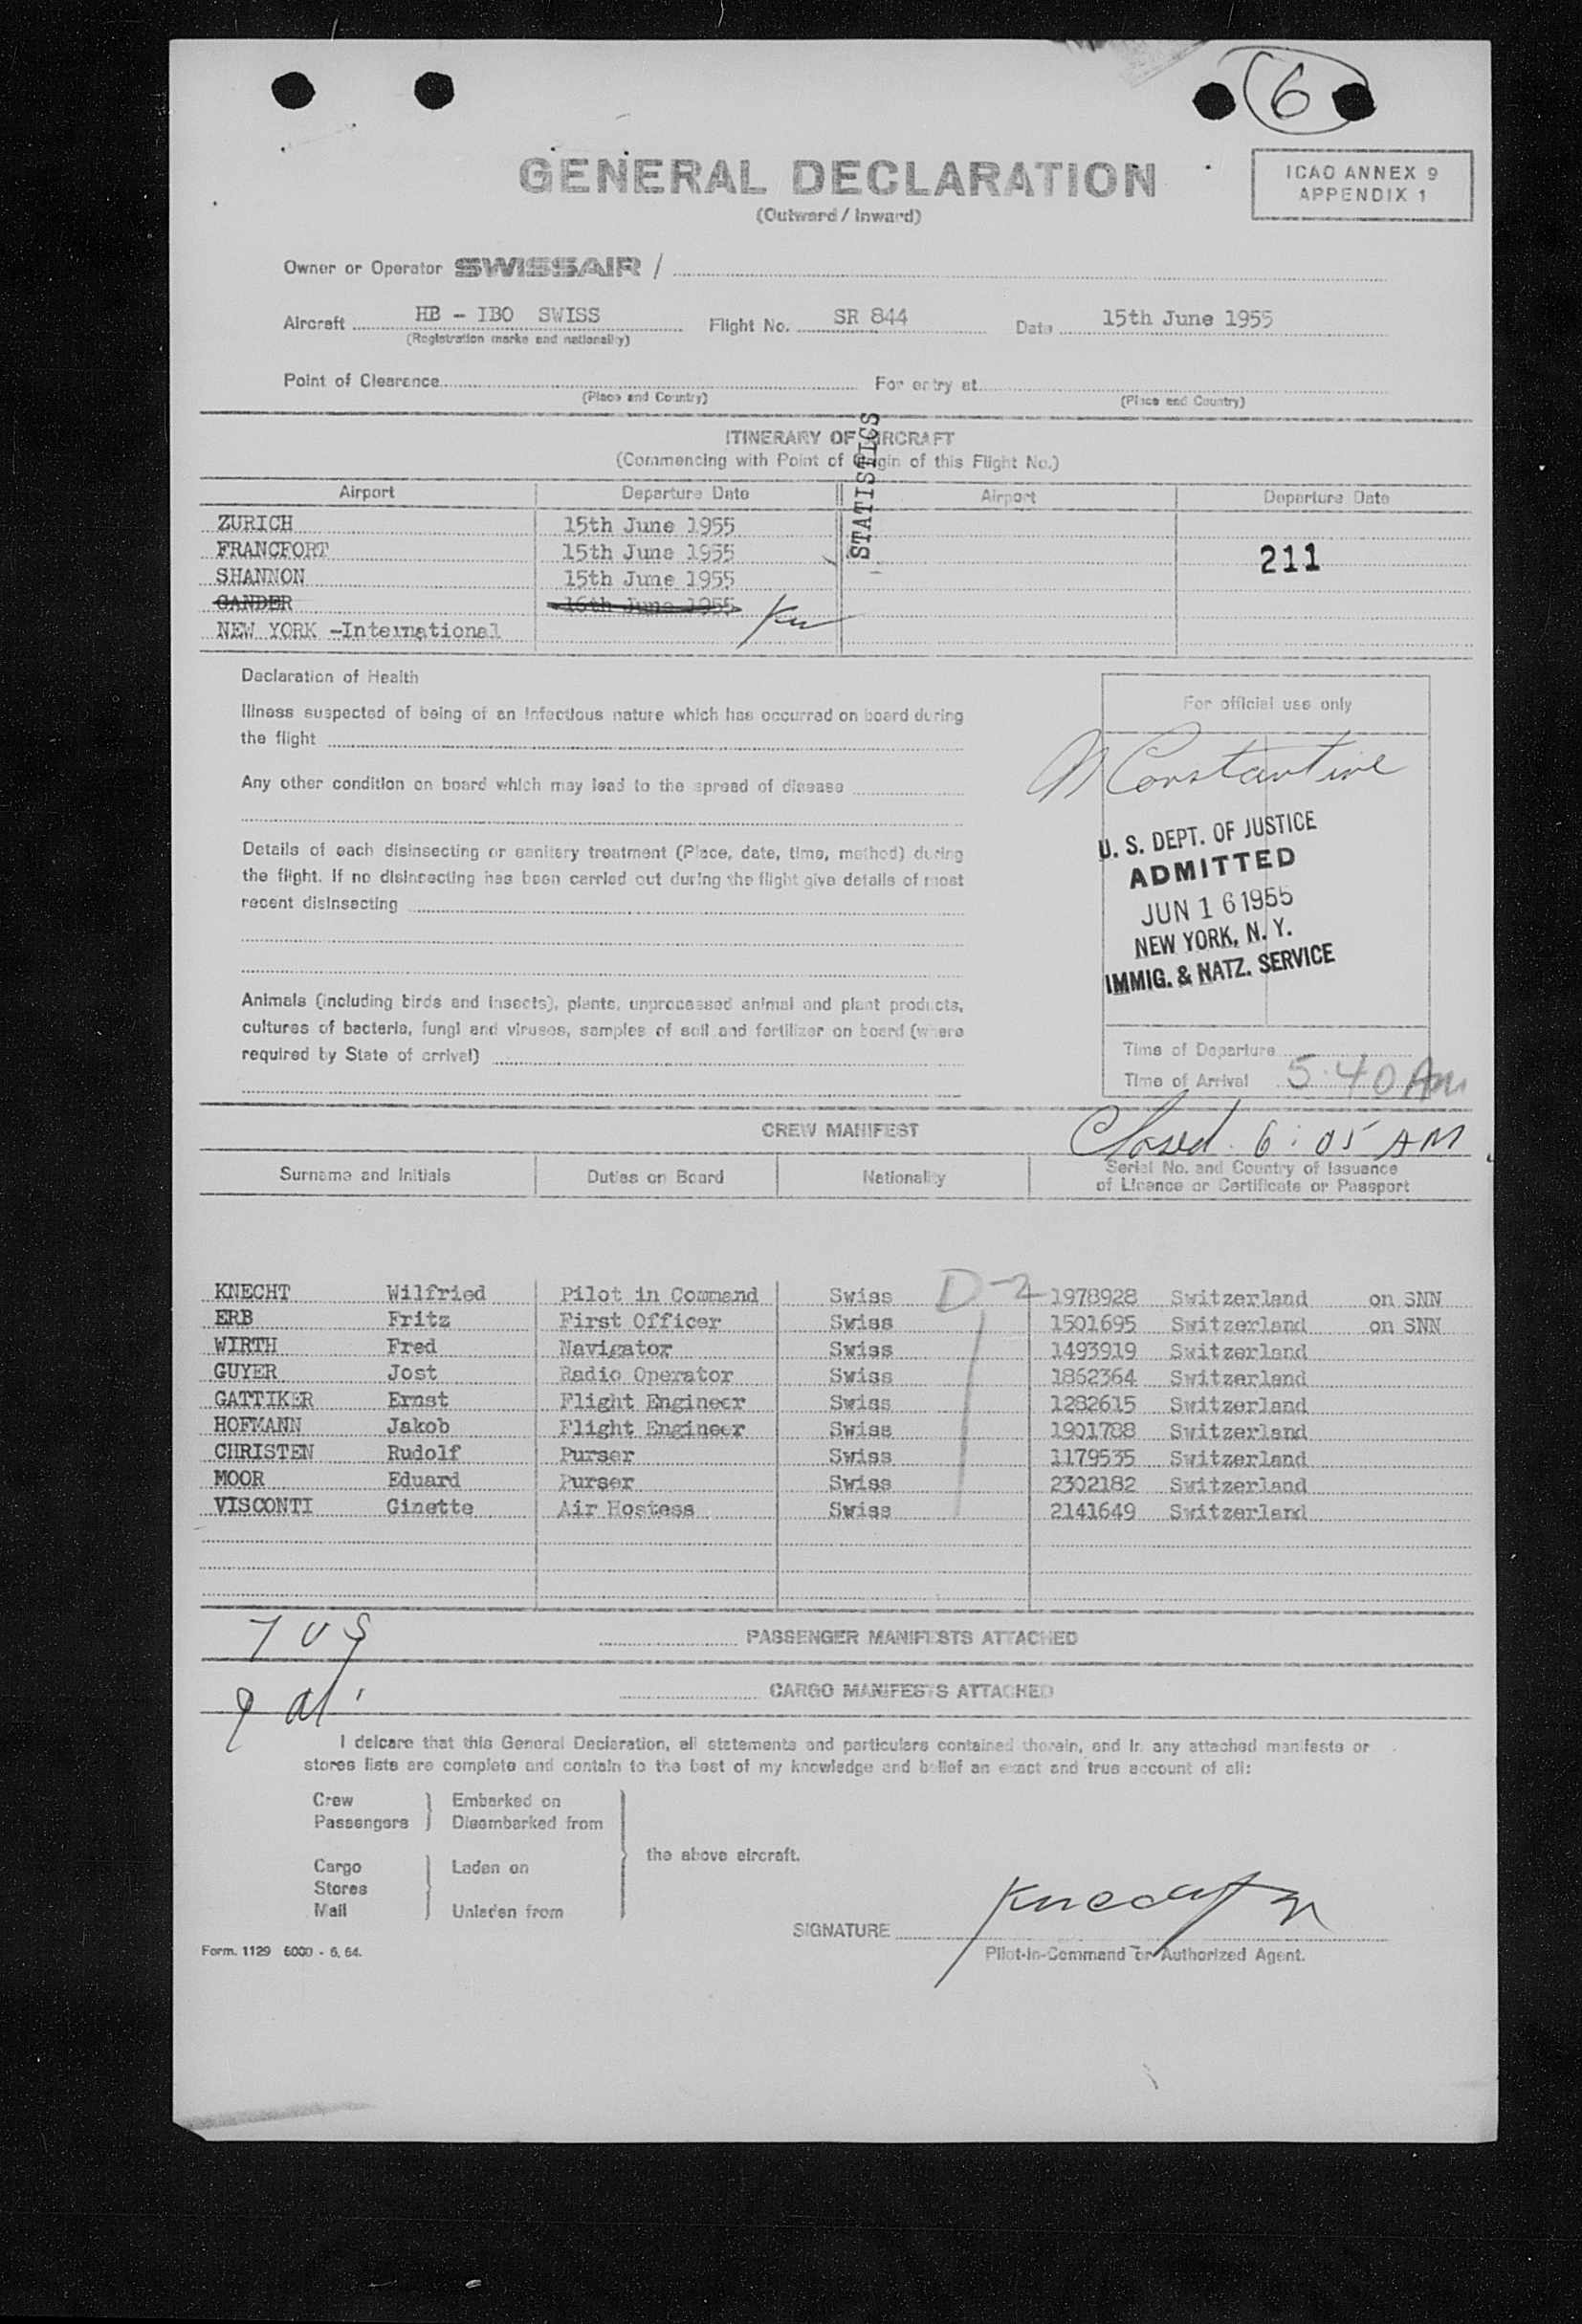 6
GENERAL DECLARATION
(Outward / Inward)
ICAO ANNEX 9
APPENDIX 1
Owner or Operator SWISSAIR /
Aircraft HB - IBO SWISS Flight No. SR 844 Date 15th June 1955
(Registration marks and nationality)
Point of Clearance For entry at
(Place and Country) (Place and Country)
ITINERARY OF AIRCRAFT
(Commencing with Point of Origin of this Flight No.)
STATISTICS
Airport Departure Date Airport Departure Date
ZURICH 15th June 1955
FRANCFORT 15th June 1955 211
SHANNON 15th June 1955
GANDER 16th June 1955
NEW YORK -International
Declaration of Health
Illness suspected of being of an infectious nature which has occurred on board during
the flight
Any other condition on board which may lead to the spread of disease
Details of each disinsecting or sanitary treatment (Place, date, time, method) during
the flight. If no disinsecting has been carried out during the flight give details of most
recent disinsecting
Animals (including birds and insects), plants, unprocessed animal and plant products,
cultures of bacteria, fungi and viruses, samples of soil and fertilizer on board (where
required by State of arrival)
For official use only
Constantine
U. S. DEPT. OF JUSTICE
ADMITTED
JUN 16 1955
NEW YORK, N. Y.
IMMIG. & NATZ. SERVICE
Time of Departure
Time of Arrival 5.40 AM
CREW MANIFEST
Closed 6:05 AM
Surname and Initials Duties on Board Nationality Serial No. and Country of Issuance
of Licence or Certificate or Passport
D-2
KNECHT Wilfried Pilot in Command Swiss 1978928 Switzerland on SNN
ERB Fritz First Officer Swiss 1501695 Switzerland on SNN
WIRTH Fred Navigator Swiss 1493919 Switzerland
GUYER Jost Radio Operator Swiss 1862364 Switzerland
GATTIKER Ernst Flight Engineer Swiss 1282615 Switzerland
HOFMANN Jakob Flight Engineer Swiss 1901788 Switzerland
CHRISTEN Rudolf Purser Swiss 1179535 Switzerland
MOOR Eduard Purser Swiss 2302182 Switzerland
VISCONTI Ginette Air Hostess Swiss 2141649 Switzerland
7 US
PASSENGER MANIFESTS ATTACHED
CARGO MANIFESTS ATTACHED
I delcare that this General Declaration, all statements and particulars contained therein, and in any attached manifests or
stores lists are complete and contain to the best of my knowledge and belief an exact and true account of all:
Crew Embarked on
Passengers Disembarked from
the above aircraft.
Cargo Laden on
Stores
Mail Unladen from
SIGNATURE Knecht
Pilot-in-Command or Authorized Agent.
Form. 1129 6000 - 6. 54.